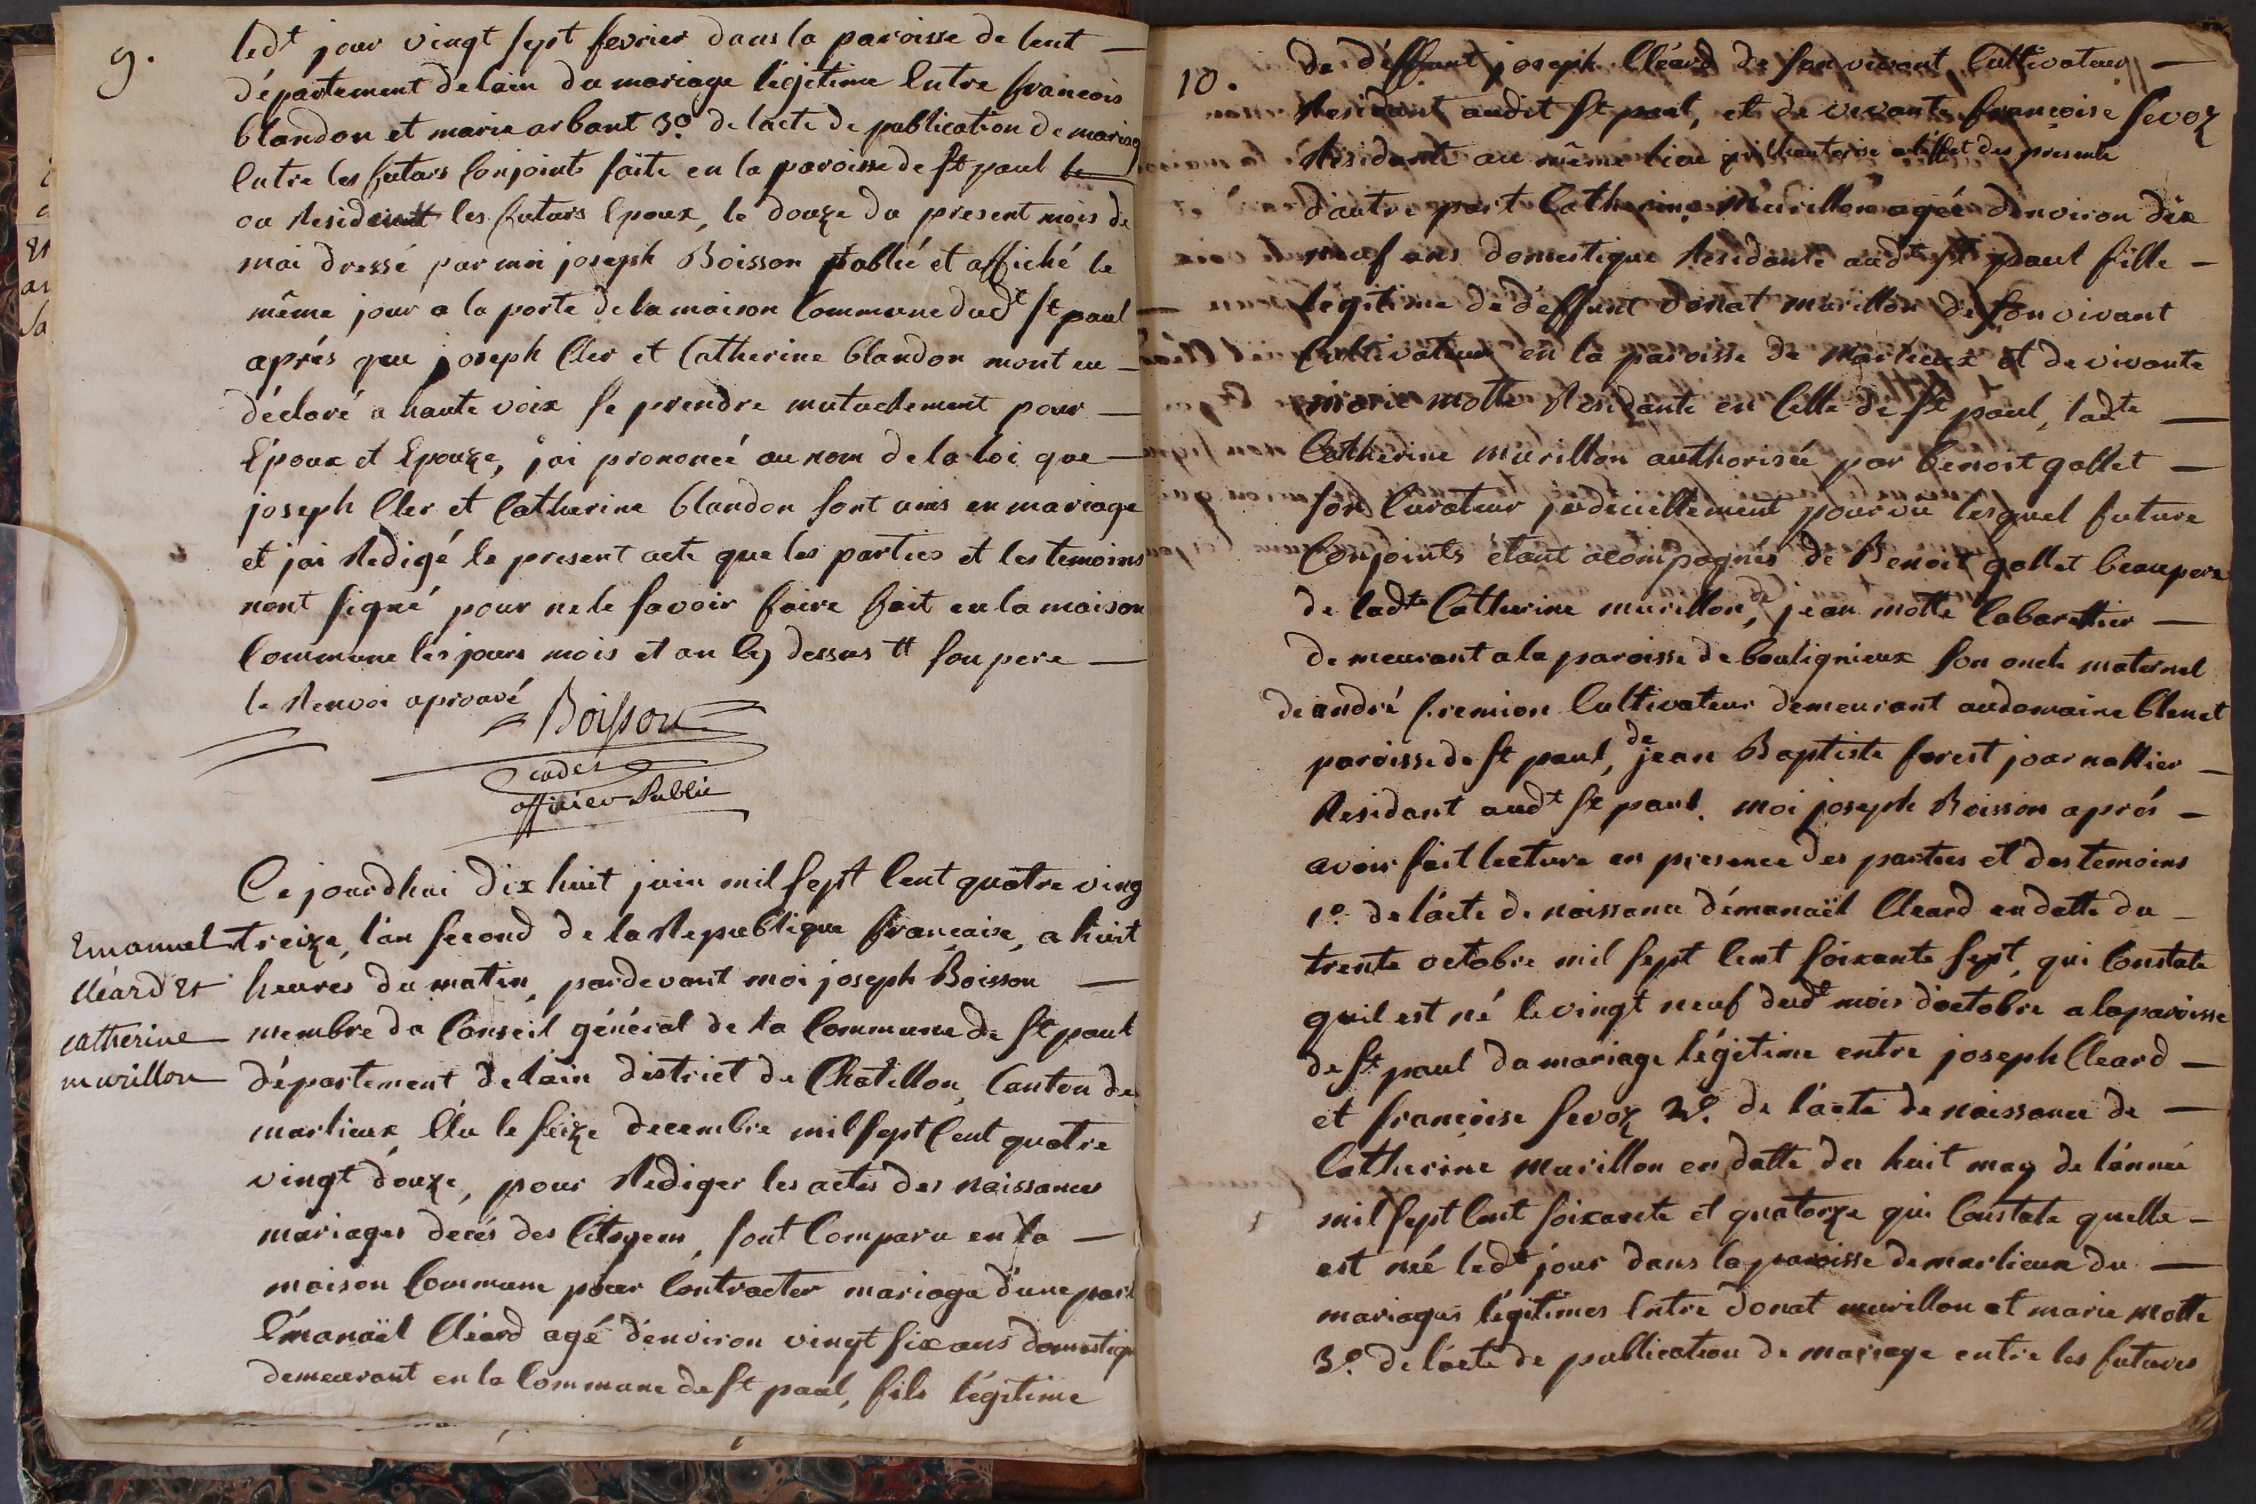 9.
led.t jour vingt sept fevrier dans la paroisse de lent —
département de lain du mariage légitime Entre francois
blandon et marie arbant 3.o de lacte de publication de mariag
Entre les futurs Conjoints faite en la paroisse de st paul le
ou Resident les futurs Epoux, le douze du present mois de
mai dressé par moi joseph Boisson publié et affiché le
même jour a la porte de la maison Commune dud.t st paul
aprés que joseph Cler et Catherine blandon mont eu —
déclaré a haute voix se prendre mutuelement pour —
Epoux et Epouze, j'ai prononcé au nom de la loi que —
joseph Cler et Catherine blandon sont unis en mariage
et jai Redigé le present acte que les parties et les temoins
nont signé pour ne le savoir faire fait en la maison
Commune les jours mois et an Cy dessus tt son pere —
le Renvoi aprouvé
Boisson
cadet
officier Public
Ce jourdhui dix huit juin mil sept Cent quatre ving
treize, l'an second de la Republique francaise, a huit
heures du matin, pardevant moi joseph Boisson —
membre du Conseil général de la Commune de st paul
département de lain district de Chatillon, Canton de
marlieux Elu le seize decembre mil sept Cent quatre
vingt douze, pour Rediger les actes des naissances
mariages decés des Citoyens, sont Comparu en la —
maison Commune pour Contracter mariage d'une part
Emanaël Cléard agé d'environ vingt six ans domestiqu
demeurant en la Commune de st paul, fils légitime
Emanuel
cléard et
catherine
murillon
10.
de déffunt joseph Cléard de son vivant Cultivateur —
Residant audit st paul, et de vivante françoise sevoz
Residante au même lieu qui lhautorise a l'effet des presente
d'autre part Catherine Murillon agée d'environ dix
neuf ans domestique Residante aud.t st paul fille —
légitime de deffunt donat murillon de son vivant
Cultivateur en la paroisse de marlieux et de vivante
marie motte Residante en Celle de st paul, lad.te —
Catherine murillon authorisée par benoit gallet —
son Curateur judeciellement pourvu lesquel future
Conjoints étant acompagnés de Benoit gallet beaupere
de lad.te Catherine murillon, de jean motte Cabarettier —
demeurant a la paroisse de bouligneux son oncle maternel
de andré fremion Cultivateur demeurant audomaine blenet
paroisse de st paul, de jean Baptiste forest journallier —
Residant aud.t st paul. moi joseph Boisson aprés —
avoir fait lecture en presence des parties et des temoins
1.o de l'acte de naissance d'émanaël Cleard en datte du —
trente octobre mil sept Cent soixante sept, qui Constate
quil est né le vingt neuf dud.t mois d'octobre a la paroisse
de st paul du mariage légitime entre joseph Cleard —
et françoise sevoz 2.o de l'acte de naissance de —
Catherine murillon en datte du huit may de l'année
mil sept Cent soixante et quatorze qui Constate quelle —
est née led.t jour dans la paroisse de marlieux du —
mariages légitimes Entre donat murillon et marie motte
3.o de l'acte de publication de mariage entre les futures